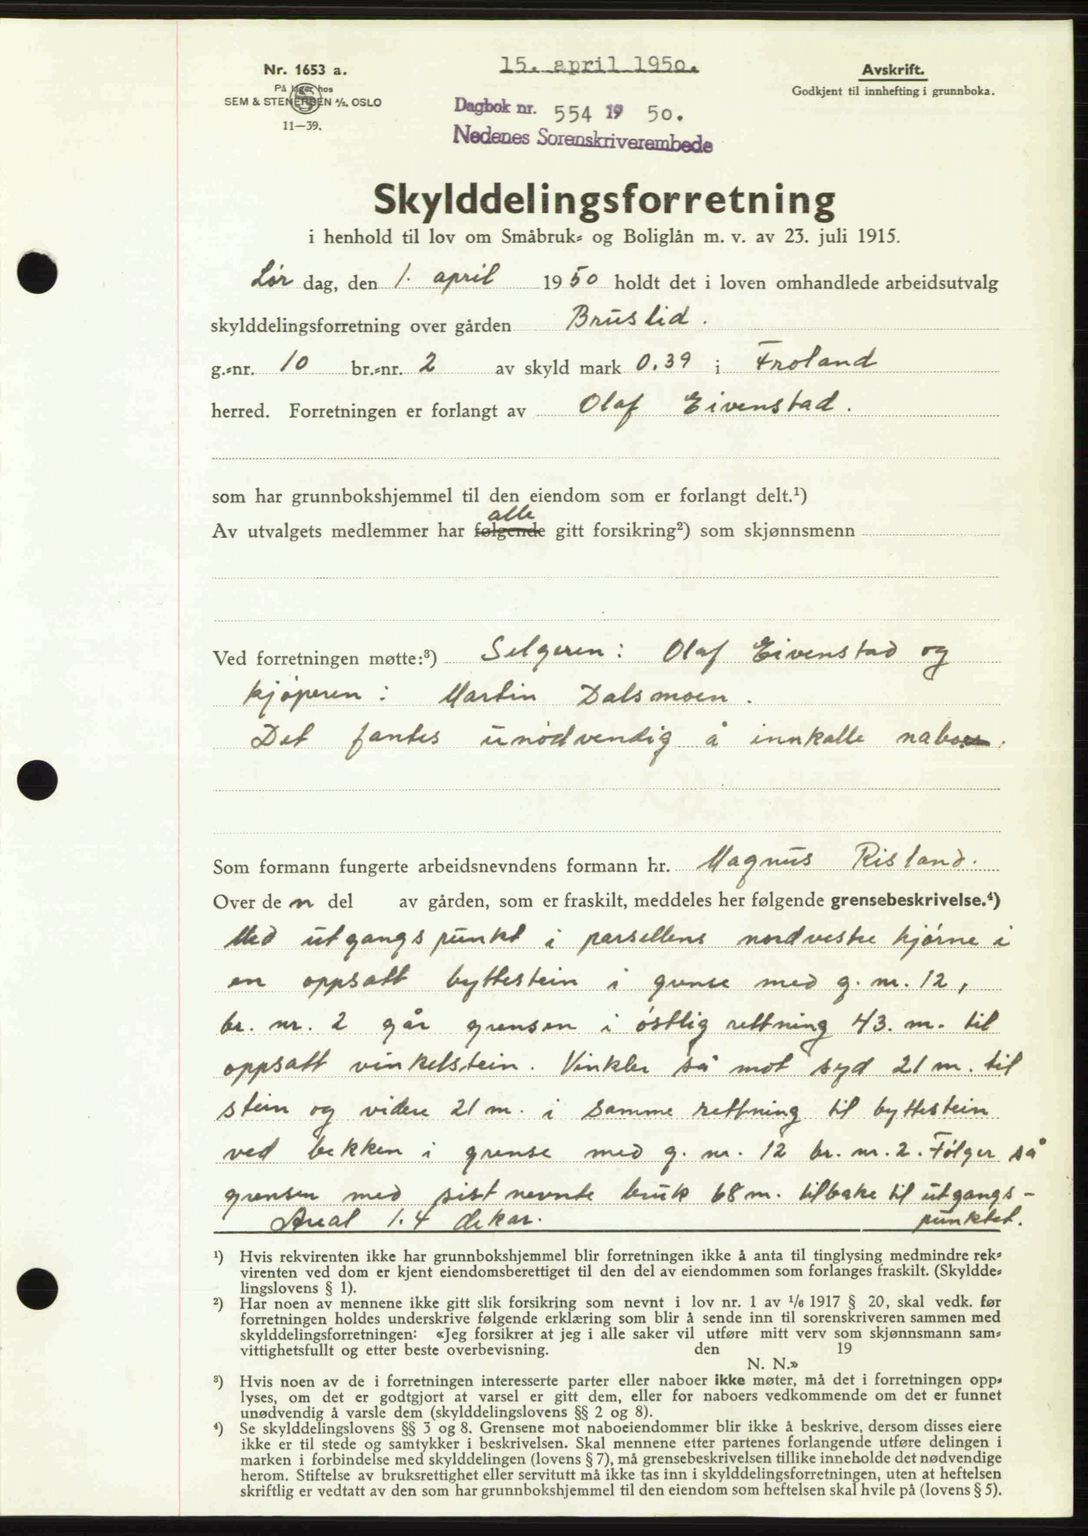 15. april 1950.
Nr. 1653 a.
På lager hos
SEM & STENERSEN A/S, OSLO
11—39.
Avskrift.
Godkjent til innhefting i grunnboka.
Dagbok nr. 554 19 50.
Nedenes Sorenskriverembede
Skylddelingsforretning
i henhold til lov om Småbruk- og Boliglån m. v. av 23. juli 1915.
Lør dag, den 1. april 1950 holdt det i loven omhandlede arbeidsutvalg
skylddelingsforretning over gården Bruslid.
g.-nr. 10 br.-nr. 2 av skyld mark 0.39 i Froland
herred. Forretningen er forlangt av Olaf Eivenstad.
som har grunnbokshjemmel til den eiendom som er forlangt delt.¹)
alle
Av utvalgets medlemmer har følgende gitt forsikring²) som skjønnsmenn
Ved forretningen møtte:³) Selgeren: Olaf Eivenstad og
kjøperen: Martin Dalsmoen.
Det fantes unødvendig å innkalle naboer.
Som formann fungerte arbeidsnevndens formann hr. Magnus Risland.
Over de n del av gården, som er fraskilt, meddeles her følgende grensebeskrivelse.⁴)
Med utgangspunkt i parsellens nordvestre hjørne i
en oppsatt byttestein i grense med g. nr. 12,
br. nr. 2 går grensen i østlig rettning 43. m. til
oppsatt vinkelstein. Vinkler så mot syd 21 m. til
stein og videre 21 m. i samme rettning til byttestein
ved bekken i grense med g. nr. 12 br. nr. 2. Følger så
grensen med sistnevnte bruk 68 m. tilbake til utgangs-
punktet.
Areal 1.4 dekar.
¹) Hvis rekvirenten ikke har grunnbokshjemmel blir forretningen ikke å anta til tinglysing medmindre rek-
virenten ved dom er kjent eiendomsberettiget til den del av eiendommen som forlanges fraskilt. (Skyldde-
lingslovens § 1).
²) Har noen av mennene ikke gitt slik forsikring som nevnt i lov nr. 1 av ¹/₆ 1917 § 20, skal vedk. før
forretningen holdes underskrive følgende erklæring som blir å sende inn til sorenskriveren sammen med
skylddelingsforretningen: «Jeg forsikrer at jeg i alle saker vil utføre mitt verv som skjønnsmann sam-
vittighetsfullt og etter beste overbevisning. den 19
N. N.»
³) Hvis noen av de i forretningen interesserte parter eller naboer ikke møter, må det i forretningen opp-
lyses, om det er godtgjort at varsel er gitt dem, eller for naboers vedkommende om det er funnet
unødvendig å varsle dem (skylddelingslovens §§ 2 og 8).
⁴) Se skylddelingslovens §§ 3 og 8. Grensene mot naboeiendommer blir ikke å beskrive, dersom disses eiere
ikke er til stede og samtykker i beskrivelsen. Skal mennene etter partenes forlangende utføre delingen i
marken i forbindelse med skylddelingen (lovens § 7), må grensebeskrivelsen tillike inneholde det nødvendige
herom. Stiftelse av bruksrettighet eller servitutt må ikke tas inn i skylddelingsforretningen, uten at heftelsen
skriftlig er vedtatt av den som har grunnbokshjemmel til den eiendom som heftelsen skal hvile på (lovens § 5).